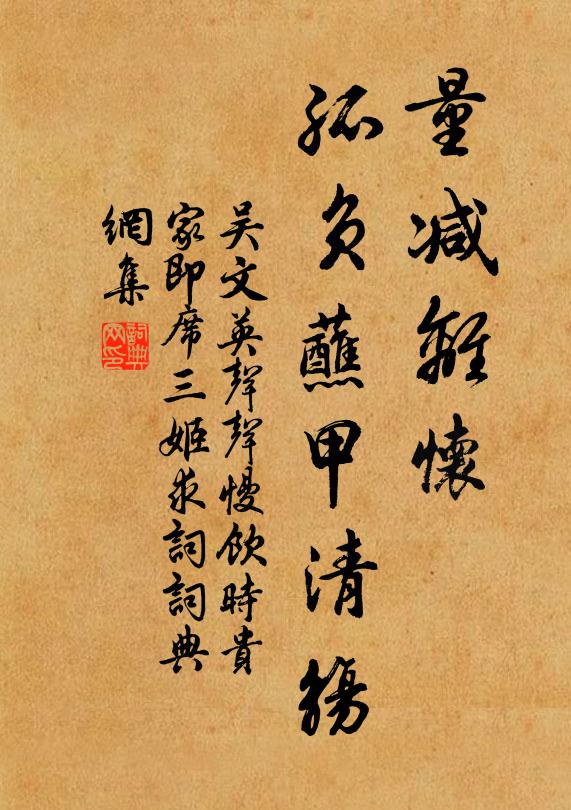 量減離懷
孤負蘸甲清觴
吴文英聲聲慢飲時貴
家即席三姬求詞詞典
網集
詞典
网印